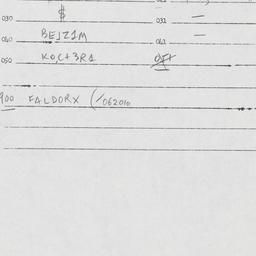 030 $ 031 —
040 BEJZIM 041 —
050 KOC+3R1
900 FALDORX (/062010